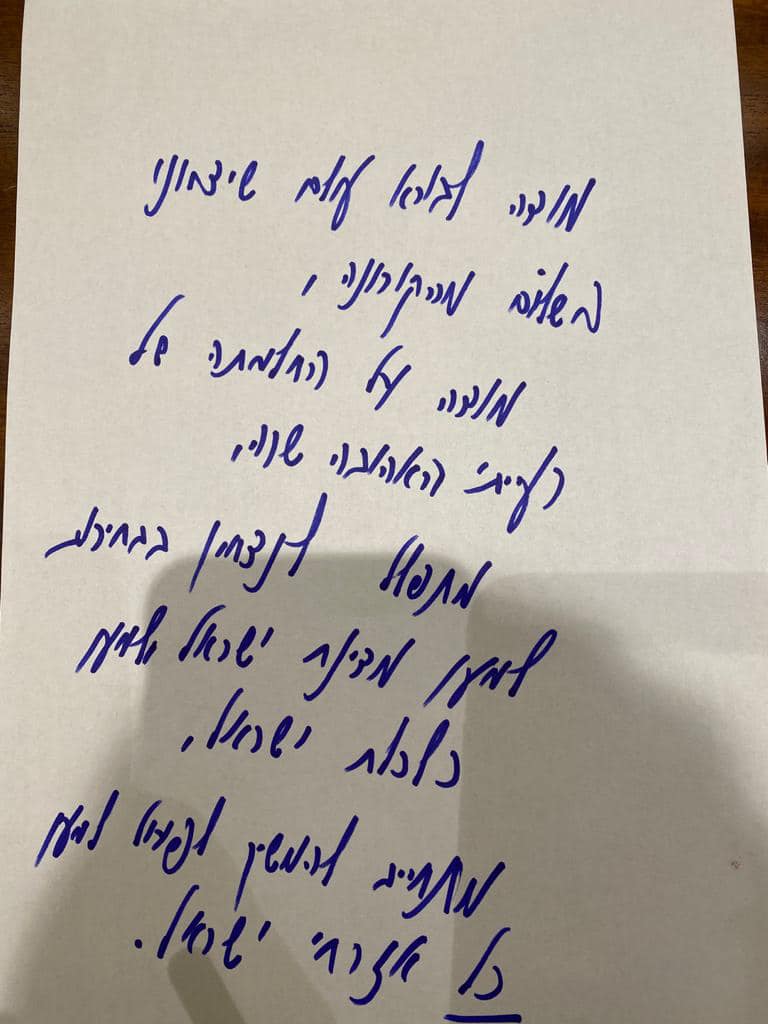 מודה לבורא עולם שיצאתי
בשלום מהקורונה,
מודה על החלמתה של
רעייתי האהובה שרון,
מתפלל לנצחון בבחירות
למען מדינת ישראל ולמען
כלכלת ישראל,
מתחייב להמשיך לפעול למען
כל אזרחי ישראל.